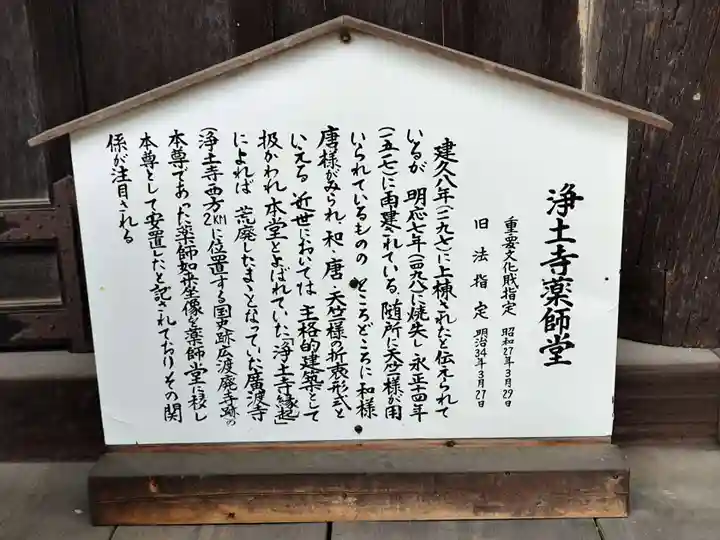 浄土寺薬師堂
重要文化財指定 昭和27年3月29日
旧法指定 明治34年3月27日
建久八年(一一九七)に上棟されたと伝えられて
いるが 明応七年(一四九八)に焼失し永正十四年
(一五一七)に再建されている。随所に天竺様が用
いられているものの ところどころに和様
唐様がみられ、和・唐・天竺様の折衷形式と
いえる 近世においては 主格的建築として
扱かわれ 本堂とよばれていた「浄土寺縁起」
によれば 荒廃したままとなっていた廣渡寺
(浄土寺西方2KMに位置する国史跡広渡廃寺跡の
本尊であった薬師如来坐像を薬師堂に移し
本尊として安置したと記されておりその関
係が注目される